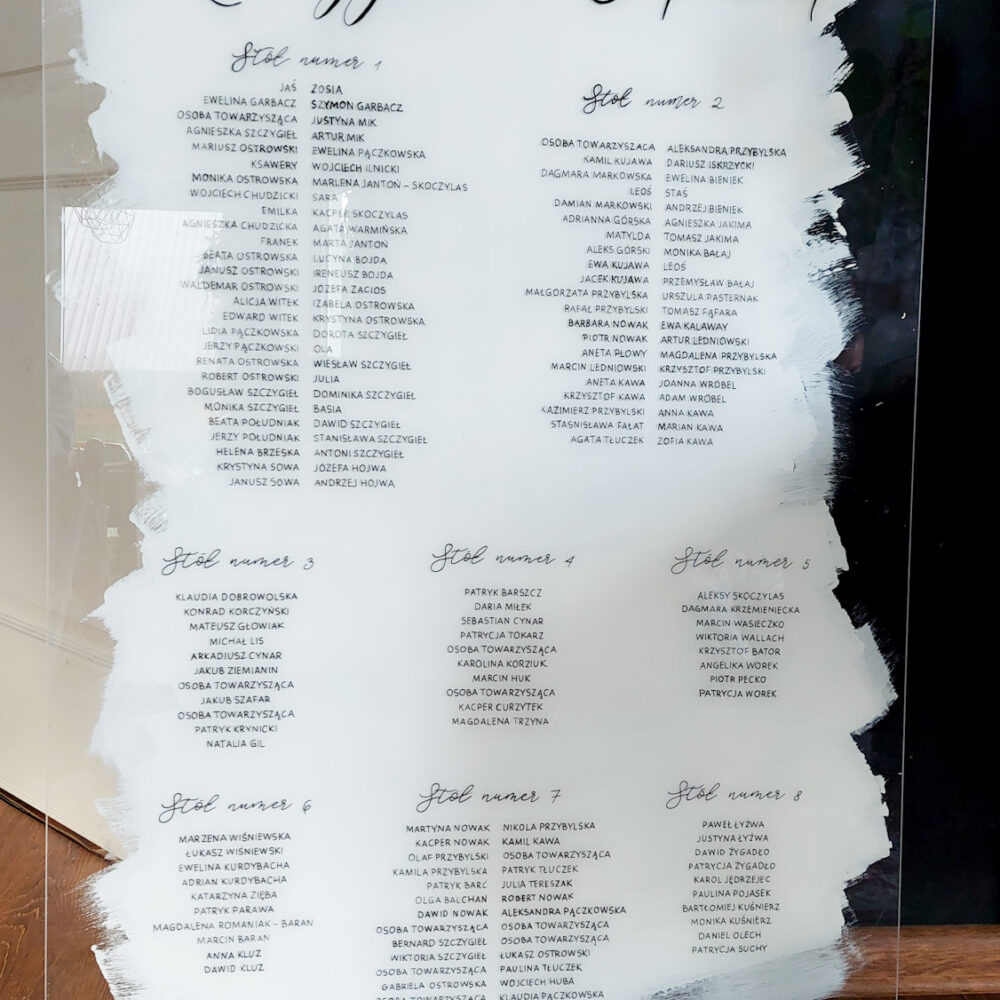 Stół numer 1
JAŚ ZOSIA
EWELINA GARBACZ SZYMON GARBACZ
OSOBA TOWARZYSZĄCA JUSTYNA MIK
AGNIESZKA SZCZYGIEŁ ARTUR MIK
MARIUSZ OSTROWSKI EWELINA PĄCZKOWSKA
KSAWERY WOJCIECH ILNICKI
MONIKA OSTROWSKA MARLENA JANTOŃ - SKOCZYLAS
WOJCIECH CHUDZICKI SARA
EMILKA KACPER SKOCZYLAS
AGNIESZKA CHUDZICKA AGATA WARMIŃSKA
FRANEK MARTA JANTOŃ
BEATA OSTROWSKA LUCYNA BOJDA
JANUSZ OSTROWSKI IRENEUSZ BOJDA
WALDEMAR OSTROWSKI JÓZEFA ZACIOS
ALICJA WITEK IZABELA OSTROWSKA
EDWARD WITEK KRYSTYNA OSTROWSKA
LIDIA PĄCZKOWSKA DOROTA SZCZYGIEŁ
JERZY PĄCZKOWSKI OLA
RENATA OSTROWSKA WIESŁAW SZCZYGIEŁ
ROBERT OSTROWSKI JULIA
BOGUSŁAW SZCZYGIEŁ DOMINIKA SZCZYGIEŁ
MONIKA SZCZYGIEŁ BASIA
BEATA POŁUDNIAK DAWID SZCZYGIEŁ
JERZY POŁUDNIAK STANISŁAWA SZCZYGIEŁ
HELENA BRZESKA ANTONI SZCZYGIEŁ
KRYSTYNA SOWA JÓZEFA HOJWA
JANUSZ SOWA ANDRZEJ HOJWA
Stół numer 2
OSOBA TOWARZYSZĄCA ALEKSANDRA PRZYBYLSKA
KAMIL KUJAWA DARIUSZ ISKRZYCKI
DAGMARA MARKOWSKA EWELINA BIENIEK
LEOŚ STAŚ
DAMIAN MARKOWSKI ANDRZEJ BIENIEK
ADRIANNA GÓRSKA AGNIESZKA JAKIMA
MATYLDA TOMASZ JAKIMA
ALEKS GÓRSKI MONIKA BAŁAJ
EWA KUJAWA LEOŚ
JACEK KUJAWA PRZEMYSŁAW BAŁAJ
MAŁGORZATA PRZYBYLSKA URSZULA PASTERNAK
RAFAŁ PRZYBYLSKI TOMASZ FĄFARA
BARBARA NOWAK EWA KALAWAY
PIOTR NOWAK ARTUR LEDNIOWSKI
ANETA PŁOWY MAGDALENA PRZYBYLSKA
MARCIN LEDNIOWSKI KRZYSZTOF PRZYBYLSKI
ANETA KAWA JOANNA WRÓBEL
KRZYSZTOF KAWA ADAM WRÓBEL
KAZIMIERZ PRZYBYLSKI ANNA KAWA
STASNISŁAWA FAŁAT MARIAN KAWA
AGATA TŁUCZEK ZOFIA KAWA
Stół numer 3
KLAUDIA DOBROWOLSKA
KONRAD KORCZYŃSKI
MATEUSZ GŁOWIAK
MICHAŁ LIS
ARKADIUSZ CYNAR
JAKUB ZIEMIANIN
OSOBA TOWARZYSZĄCA
JAKUB SZAFAR
OSOBA TOWARZYSZĄCA
PATRYK KRYNICKI
NATALIA GIL
Stół numer 4
PATRYK BARSZCZ
DARIA MIŁEK
SEBASTIAN CYNAR
PATRYCJA TOKARZ
OSOBA TOWARZYSZĄCA
KAROLINA KORZIUK
MARCIN HUK
OSOBA TOWARZYSZĄCA
KACPER CURZYTEK
MAGDALENA TRZYNA
Stół numer 5
ALEKSY SKOCZYLAS
DAGMARA KRZEMIENIECKA
MARCIN WASIECZKO
WIKTORIA WALLACH
KRZYSZTOF BATOR
ANGELIKA WOREK
PIOTR PECKO
PATRYCJA WOREK
Stół numer 6
MARZENA WIŚNIEWSKA
ŁUKASZ WIŚNIEWSKI
EWELINA KURDYBACHA
ADRIAN KURDYBACHA
KATARZYNA ZIĘBA
PATRYK PARAWA
MAGDALENA ROMANIAK - BARAN
MARCIN BARAN
ANNA KLUZ
DAWID KLUZ
Stół numer 7
MARTYNA NOWAK NIKOLA PRZYBYLSKA
KACPER NOWAK KAMIL KAWA
OLAF PRZYBYLSKI OSOBA TOWARZYSZĄCA
KAMILA PRZYBYLSKA PATRYK TŁUCZEK
PATRYK BARĆ JULIA TERESZAK
OLGA BALCHAN ROBERT NOWAK
DAWID NOWAK ALEKSANDRA PĄCZKOWSKA
OSOBA TOWARZYSZĄCA OSOBA TOWARZYSZĄCA
BERNARD SZCZYGIEŁ OSOBA TOWARZYSZĄCA
WIKTORIA SZCZYGIEŁ ŁUKASZ OSTROWSKI
OSOBA TOWARZYSZĄCA PAULINA TŁUCZEK
GABRIELA OSTROWSKA WOJCIECH HUBA
OSOBA TOWARZYSZĄCA KLAUDIA PĄCZKOWSKA
Stół numer 8
PAWEŁ ŁYŻWA
JUSTYNA ŁYŻWA
DAWID ŻYGADŁO
PATRYCJA ŻYGADŁO
KAROL JĘDRZEJEC
PAULINA POJASEK
BARTŁOMIEJ KUŚNIERZ
MONIKA KUŚNIERZ
DANIEL OLECH
PATRYCJA SUCHY